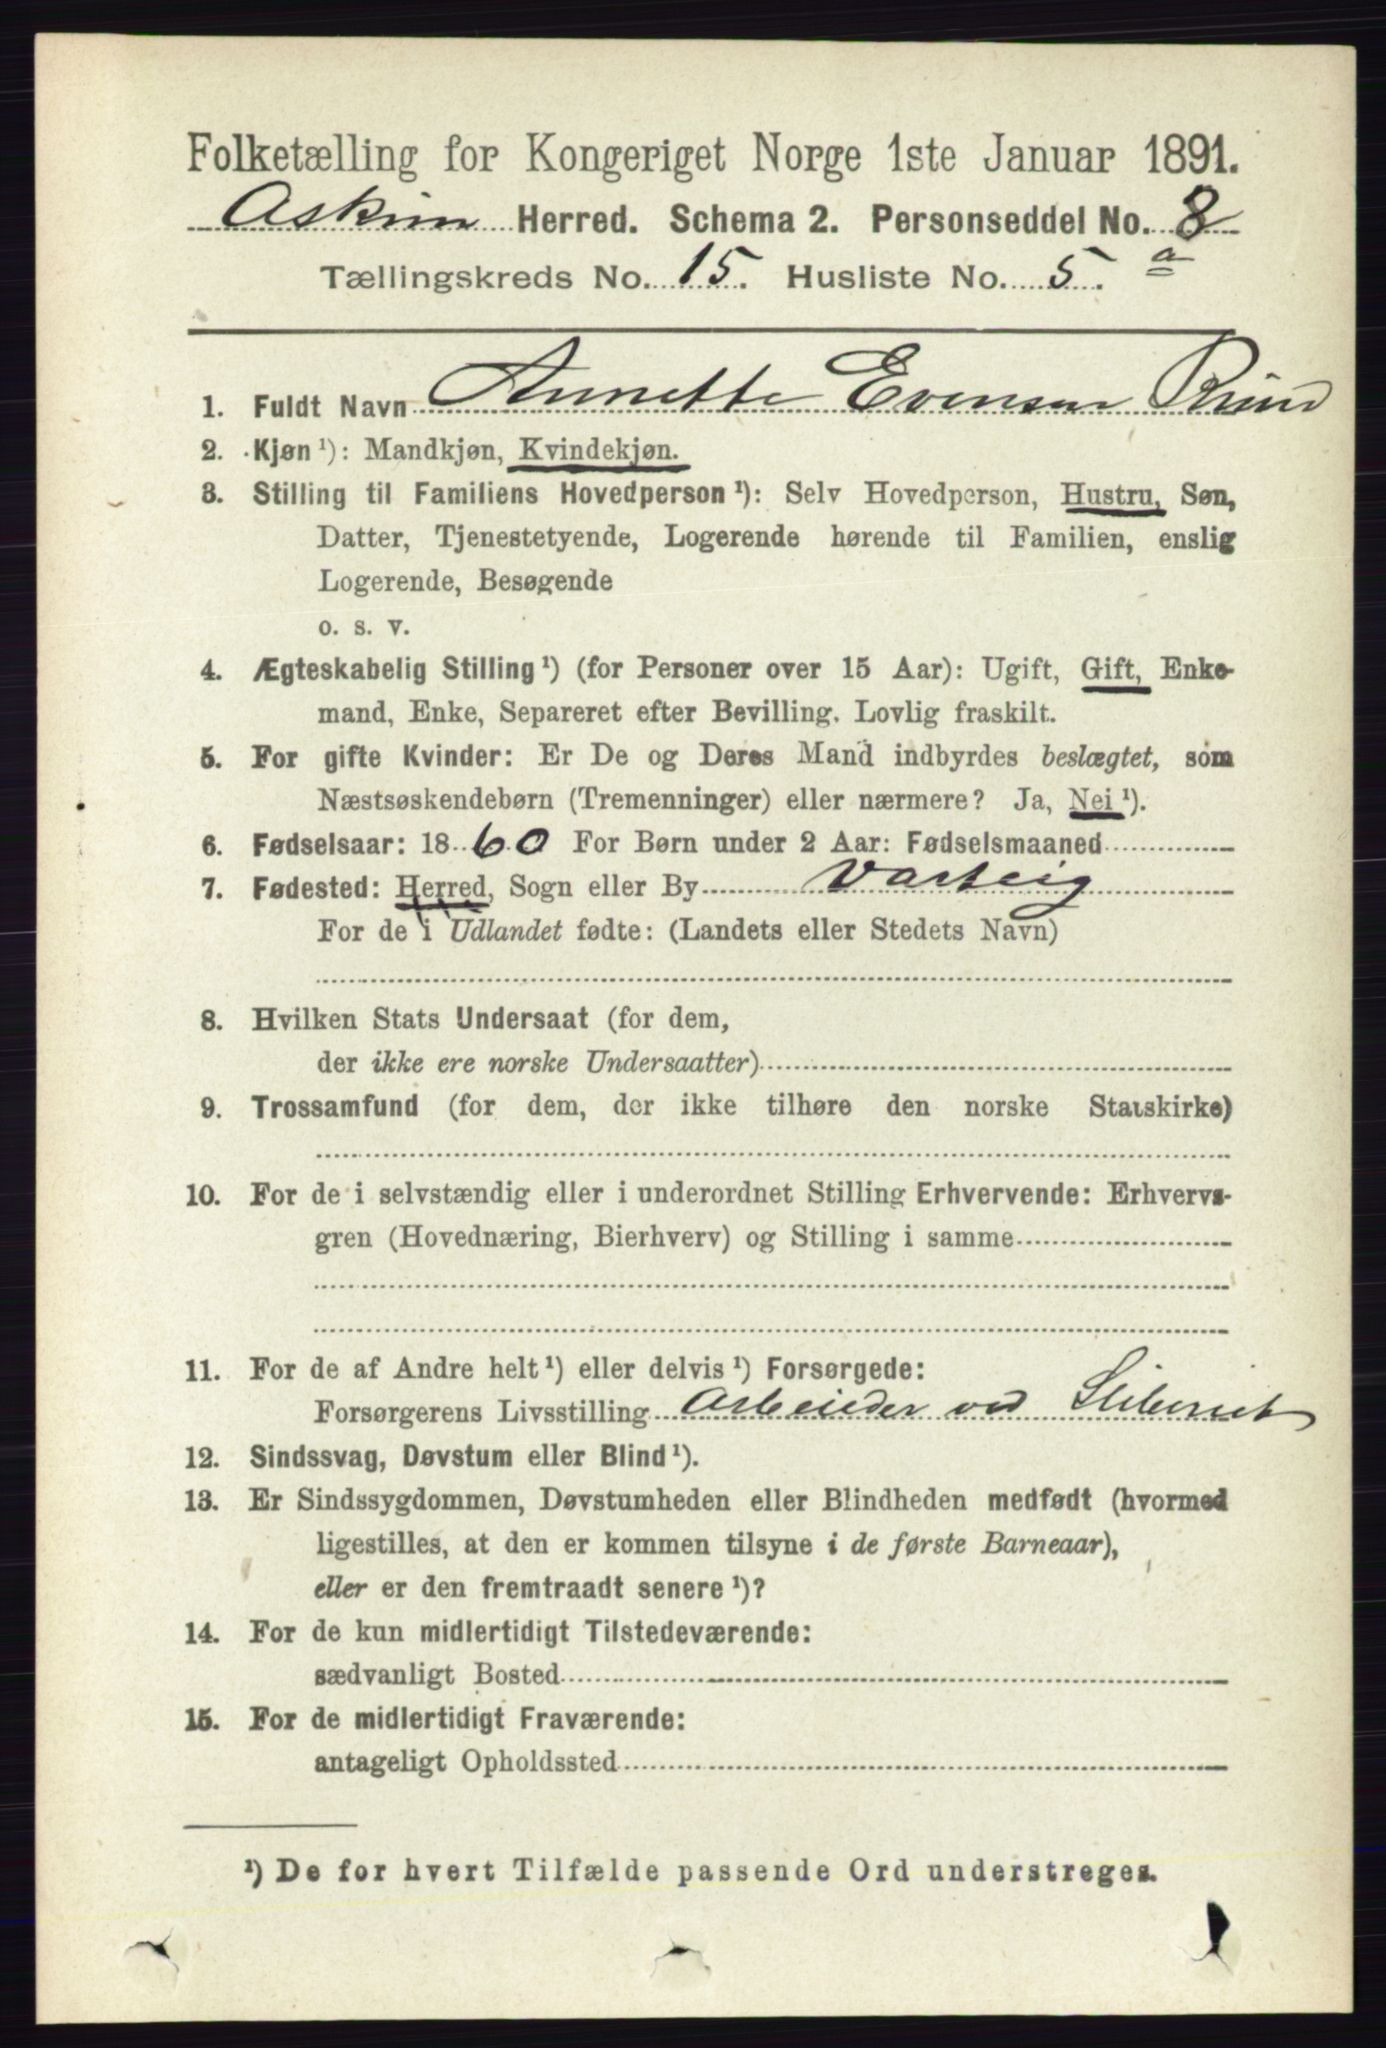 Folketælling for Kongeriget Norge 1ste Januar 1891.
Askim Herred. Schema 2. Personseddel No. 8
Tællingskreds No. 15. Husliste No. 5. a
1. Fuldt Navn Annette Evensen
2. Kjøn¹): Mandkjøn, Kvindekjøn.
3. Stilling til Familiens Hovedperson¹): Selv Hovedperson, Hustru, Søn,
Datter, Tjenestetyende, Logerende hørende til Familien, enslig
Logerende, Besøgende
o. s. v.
4. Ægteskabelig Stilling¹) (for Personer over 15 Aar): Ugift, Gift, Enke-
mand, Enke, Separeret efter Bevilling. Lovlig fraskilt.
5. For gifte Kvinder: Er De og Deres Mand indbyrdes beslægtet, som
Næstsøskendebørn (Tremenninger) eller nærmere? Ja, Nei¹).
6. Fødselsaar: 1860 For Børn under 2 Aar: Fødselsmaaned
7. Fødested: Herred, Sogn eller By Varteig
For de i Udlandet fødte: (Landets eller Stedets Navn)
8. Hvilken Stats Undersaat (for dem,
der ikke ere norske Undersaatter)
9. Trossamfund (for dem, der ikke tilhøre den norske Statskirke)
10. For de i selvstændig eller i underordnet Stilling Erhvervende: Erhvervs-
gren (Hovednæring, Bierhverv) og Stilling i samme
11. For de af Andre helt¹) eller delvis¹) Forsørgede:
Forsørgerens Livsstilling Arbeider ved Sliberiet
12. Sindssvag, Døvstum eller Blind¹).
13. Er Sindssygdommen, Døvstumheden eller Blindheden medfødt (hvormed
ligestilles, at den er kommen tilsyne i de første Barneaar),
eller er den fremtraadt senere¹)?
14. For de kun midlertidigt Tilstedeværende:
sædvanligt Bosted
15. For de midlertidigt Fraværende:
antageligt Opholdssted
¹) De for hvert Tilfælde passende Ord understreges.